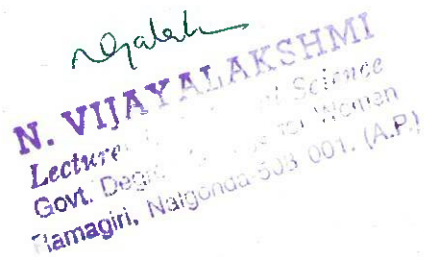 N. VIJAYALAKSHMI
Lecturer Science
Govt. Degree for Women
Ramagiri, Nalgonda-508 001. (A.P.)